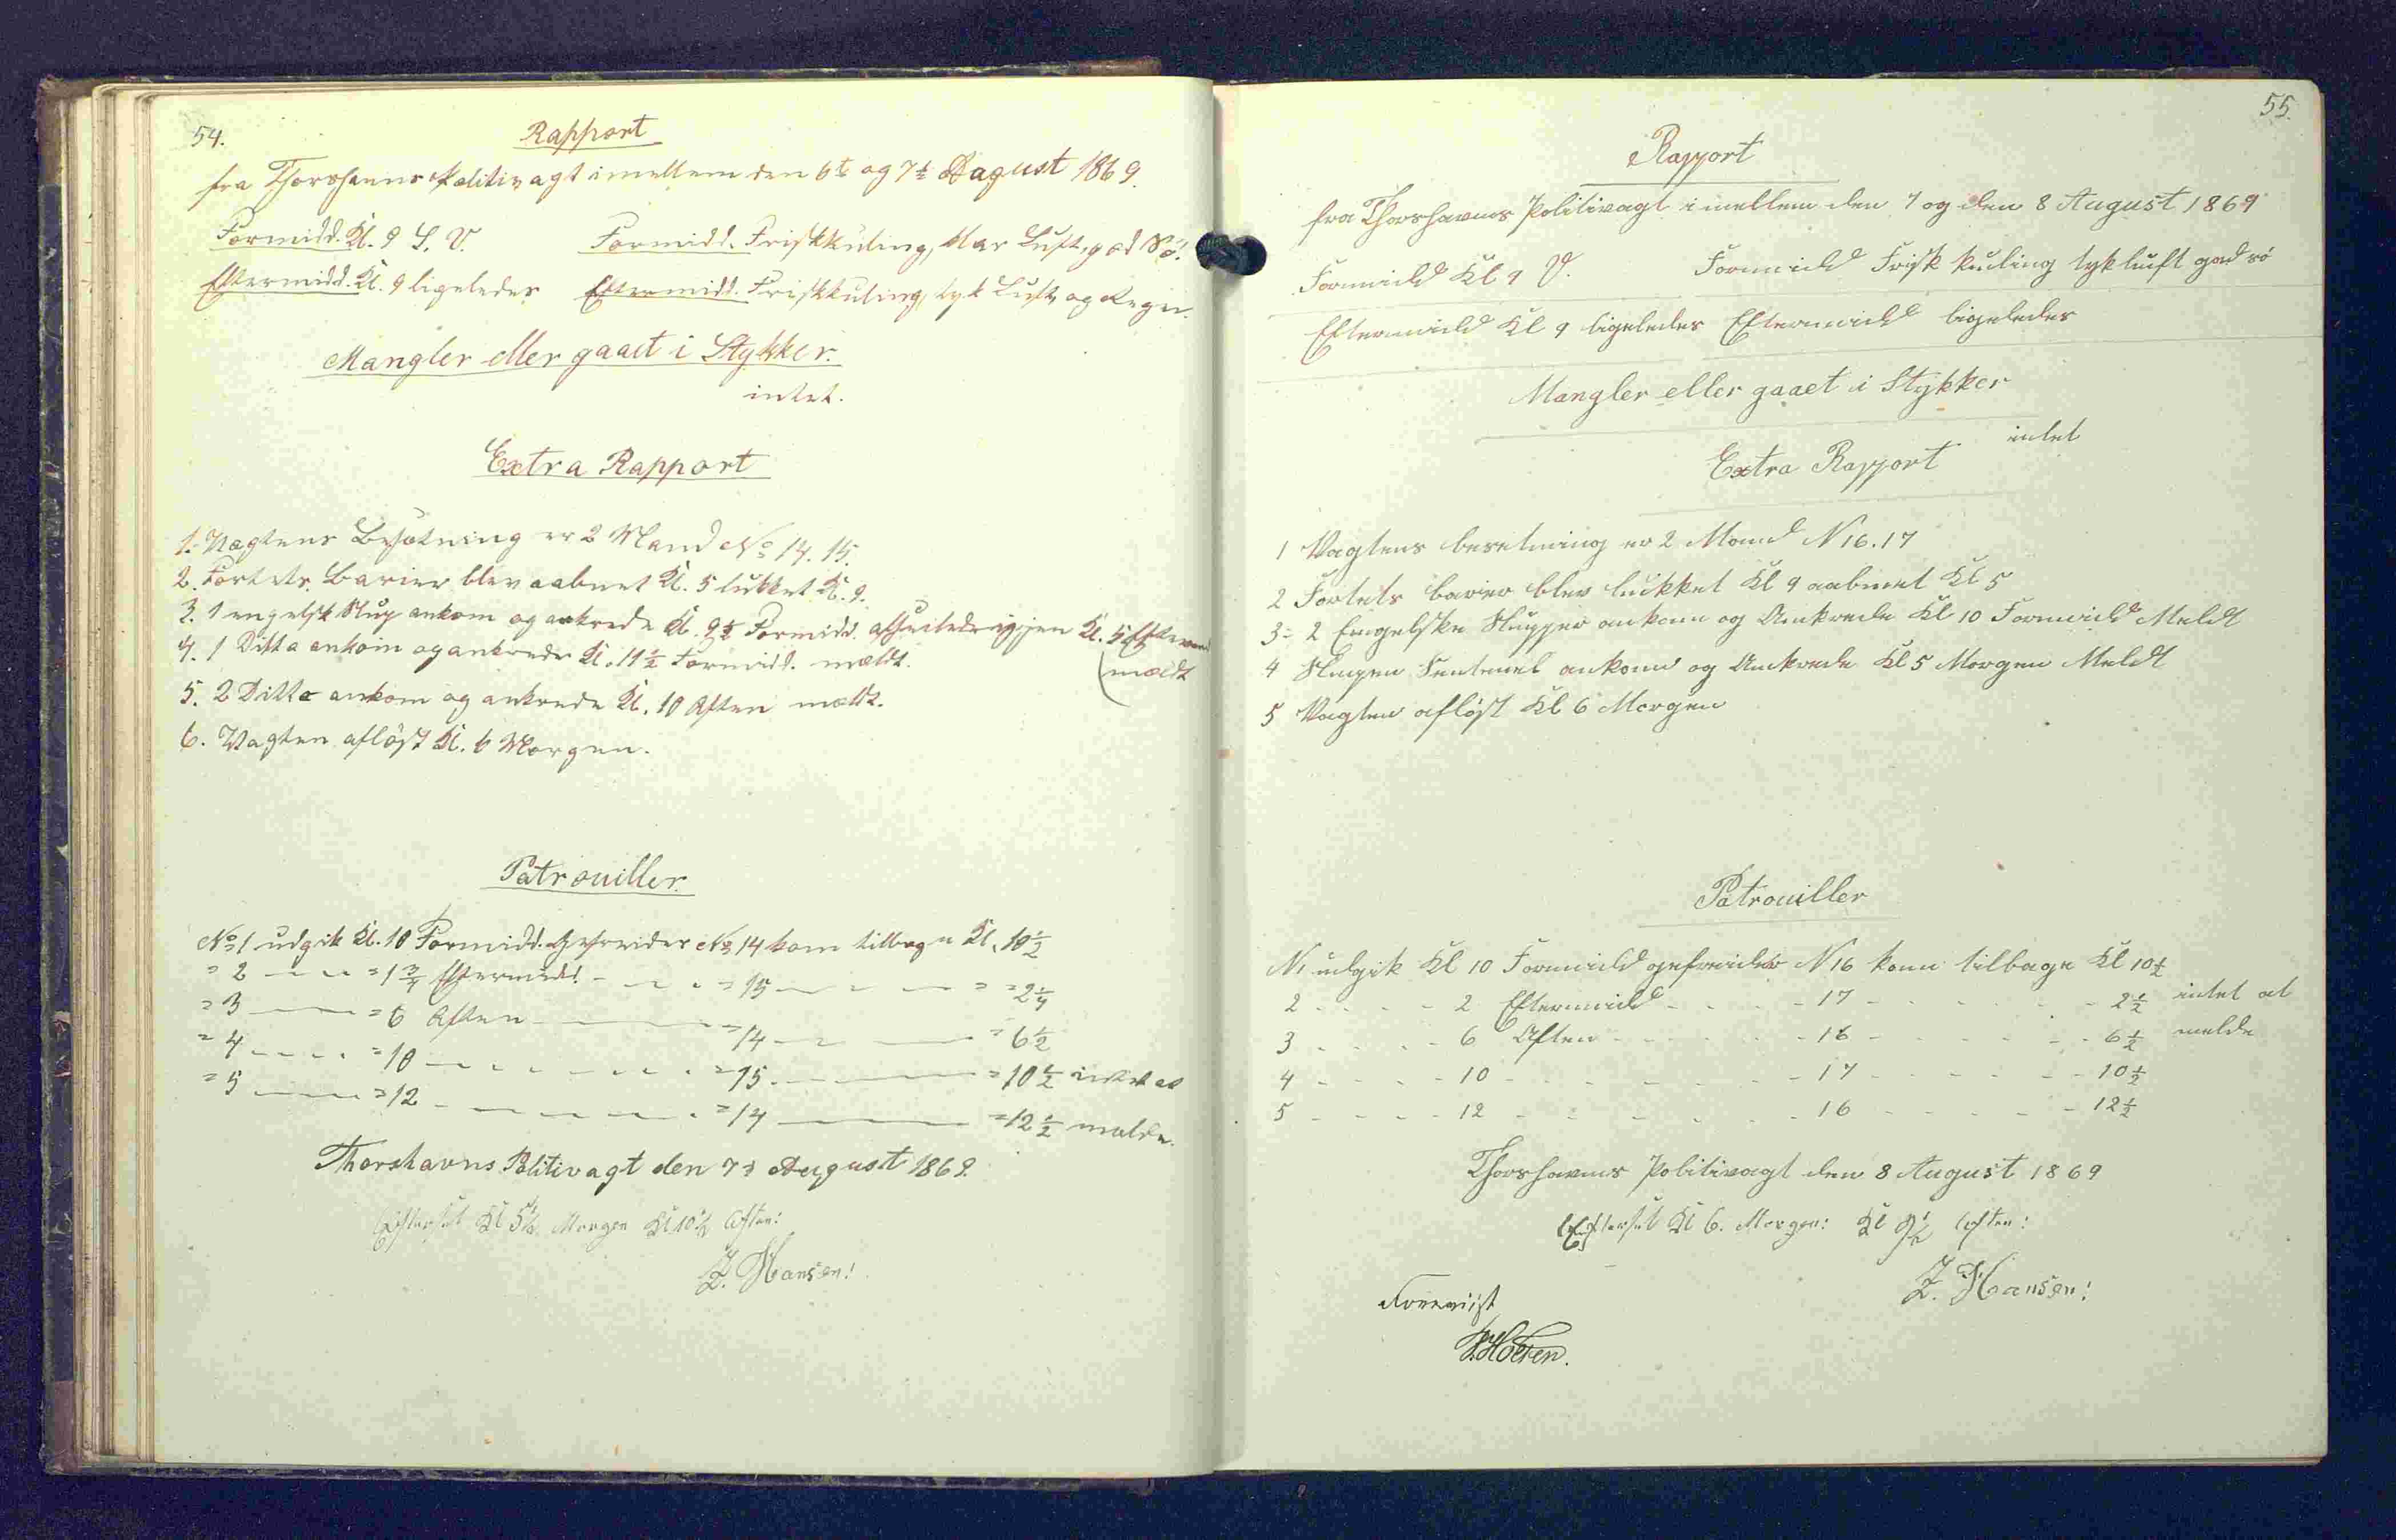 54.
Rapport
fra Thorshavns Politivagt imellem den 6te og 7de August 1869.
Formidd. Kl. 9 S. V. Formidd. Friskkuling, klar Luft, god Sö.
Eftermidd. Kl. 9 ligeledes Eftermidd. Friskkuling, tyk Luft og Regn.
Mangler eller gaaet i Stykker.
intet.
Extra Rapport
1. Vagtens Besætning er 2 Mand No 14. 15.
2. Fortets Barier blev aabnet Kl. 5 lukket Kl. 9.
3. 1 engelsk Slup ankom og ankrede Kl. 9½ Formidd. afseilede igjen Kl. 5 Efterm
mældt
4. 1 Ditto ankom og ankrede Kl. 11½ Formidd. mældt.
5. 2 Ditto ankom og ankrede Kl. 10 Aften mældt.
6. Vagten aflöst Kl. 6 Morgen.
Patrouiller.
No 1 udgik Kl. 10 Formidd. Gefreider No 14 kom tilbage Kl. 10½
= 2 - - - = 1¾ Eftermidd. - - - = 15 - - - = 2¼
= 3 - - = 6 Aften - - = 14 - - = 6½
= 4 - - - = 10 - - - - - = 15 - - = 10½ intet at
= 5 - - = 12 - - - - - = 14 - - = 12½ melde.
Thorshavns Politivagt den 7de August 1869.
Efterset Kl 5½ Morgen Kl 10½ Aften:
Z. Hansen!
55.
Rapport
fra Thorshavns Politivagt imellem den 7 og den 8 August 1869
Formidd Kl 9 V. Formidd Frisk kuling tyk luft god sö
Eftermidd Kl 9 ligeledes Eftermidd ligeledes
Mangler eller gaaet i Stykker
intet
Extra Rapport
1 Vagtens besetning er 2 Mand N 16. 17
2 Fortets barier blev lukket Kl 9 aabnet Kl 5
3 = 2 Engelske Slupper ankom og Ankrede Kl 10 Formidd Meldt
4 Slupen Sentenel ankom og Ankrede Kl 5 Morgen Meldt
5 Vagten aflöst Kl 6 Morgen
Patrouiller
N 1 udgik Kl 10 Formidd gefreider N 16 kom tilbage Kl 10½
2 - - - - 2 Eftermidd - - - 17 - - - - - 2½ intet at
3 - - - - 6 Aften - - - - - 16 - - - - - 6½ melde
4 - - - - 10 - - - - - - 17 - - - - - 10½
5 - - - - 12 - - - - - 16 - - - - - 12½
Thorshavns Politivagt den 8 August 1869
Efterset Kl 6. Morgen: Kl 9½ Aften:
Z. Hansen!
Foreviist